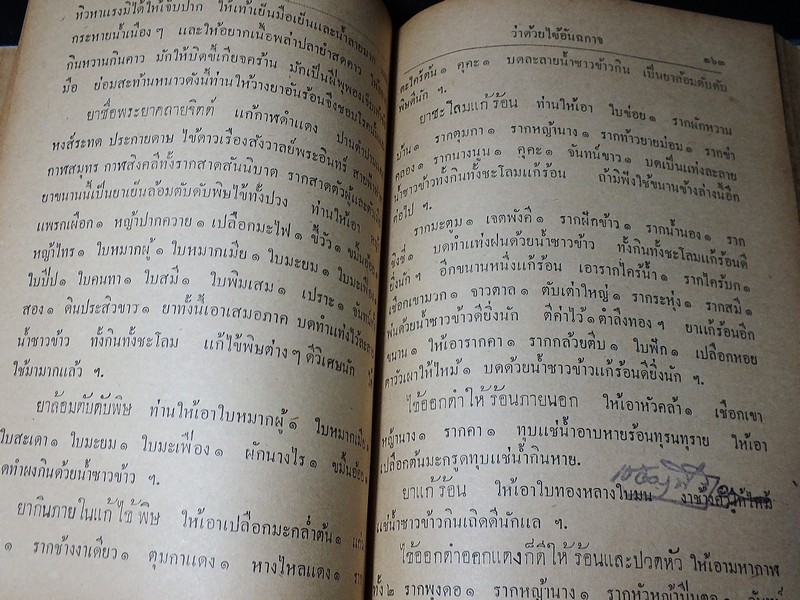 ทิวหาแรงมิได้ให้เจ็บปาก ให้เท้าเย็นมือเย็นและน้ำลายมาก
กระหายน้ำเนืองๆ และให้อยากเนื้อพล่าปลายำสดคาว
กินหวานกินคาว มักให้บิดขี้เกียจคร้าน มักเป็นฝีพุพอง
มือ ย่อมสะท้านหนาวดังนี้ท่านให้วางยาอันร้อนจึงชอบโรค
ยาชื่อพระยาคลายจิตต์ แก้กาฬดำแดง ปานดำปานแดง
หงส์ระทด ประกายดาษ ไข้ดาวเรืองสังวาลย์พระอินทร์
กาฬสมุทร กาฬสิงคลีทั้งรากสาดสันนิบาต รากสาดตัวผู้และตัวเมีย
ยาขนานนี้เป็นยาเย็นล้อมตับดับพิษไข้ทั้งปวง ท่านให้เอา
แพรกเผือก ๑ หญ้าปากควาย ๑ เปลือกมะไฟ ๑ ขี้วัว ๑ ขมิ้นอ้อย
หญ้าไทร ๑ ใบหมากผู้ ๑ ใบหมากเมีย ๑ ใบมะยม ๑ ใบมะเฟือง
ใบปีป ๑ ใบคนทา ๑ ใบสมี ๑ ใบพิมเสน ๑ เปราะ ๑
สอง ๑ ดินประสิวขาว ๑ ยาทั้งนี้เอาเสมอภาค บดทำแท่งไว้ละลาย
น้ำซาวข้าว ทั้งกินทั้งชะโลม แก้ไข้พิษต่างๆ ดีวิเศษนัก
ใช้มามากแล้ว ฯ
ยาล้อมตับดับพิษ ท่านให้เอาใบหมากผู้ ๑ ใบหมากเมีย ๑
ใบสะเดา ๑ ใบมะยม ๑ ใบมะเฟือง ๑ ผักนางไร ๑ ขมิ้นอ้อย
ดทำผงกินด้วยน้ำซาวข้าว ฯ
ยากินภายในแก้ไข้พิษ ให้เอาเปลือกมะกล่ำต้น ๑
๑ รากช้างงาเดียว ๑ ตุมกาแดง ๑ หางไหลแดง ๑
ว่าด้วยไข้อันฉกาจ ๑๖๓
ตะไคร้ต้น ๑ คุคะ ๑ บดละลายน้ำซาวข้าวกิน เป็นยาล้อมตับดับ
พิษดีนัก ฯ
ยาชะโลมแก้ร้อน ท่านให้เอา ใบข่อย ๑ รากผักหวาม
บ้าน ๑ รากตุมกา ๑ รากหญ้านาง ๑ รากท้าวยายม่อม ๑ รากขำ
คลอง ๑ รากนางนูน ๑ คุคะ ๑ จันทน์ขาว ๑ บดเป็นแท่งละลาย
น้ำซาวข้าวทั้งกินทั้งชะโลมแก้ร้อน ถ้ามิฟังใช้ขนานข้างล่างนี้อีก
ต่อไป ฯ
รากมะตูม ๑ เจตพังคี ๑ รากฝักข้าว ๑ รากน้ำนอง ๑ ราก
ชิงชี่ ๑ บดทำแท่งฝนด้วยน้ำซาวข้าว ทั้งกินทั้งชะโลมแก้ร้อนดี
ยิ่งนักๆ อีกขนานหนึ่งแก้ร้อน เอารากไคร้น้ำ ๑ รากไคร้บก ๑
เชือกเขามวก ๑ จาวตาล ๑ ตับเต่าใหญ่ ๑ รากระหุ่ง ๑ รากสมี ๑
พ่นด้วยน้ำซาวข้าวดียิ่งนัก ตีค่าไว้ ๑ ตำลึงทอง ฯ ยาแก้ร้อนอีก
ขนาน ๑ ให้เอารากคา ๑ รากกล้วยตีบ ๑ ใบฟัก ๑ เปลือกหอย
ตาวัวเผาให้ไหม้ ๑ บดด้วยน้ำซาวข้าวแก้ร้อนดียิ่งนัก ฯ
ไข้ออกดำให้ร้อนภายนอก ให้เอาหัวคล้า ๑ เชือกเขา
หญ้านาง ๑ รากคา ๑ ทุบแช่น้ำอาบหายร้อนทุรนทุราย ให้เอา
เปลือกต้นมะกรูดทุบแช่น้ำกินหาย.
ยาแก้ร้อน ให้เอาใบทองหลางใบมน งาช้าง
แช่น้ำซาวข้าวกินเถิดดีนักแล ฯ
ไข้ออกดำออกแดงก็ดีให้ร้อนและปวดหัว ให้เอามหากาฬ
ทั้ง ๒ รากพุงดอ ๑ รากหญ้านาง ๑